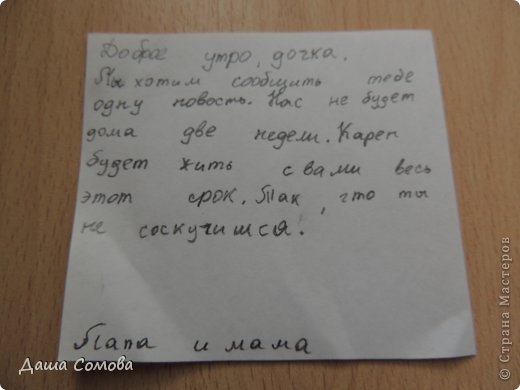 Доброе утро, дочка.
Мы хотим сообщить тебе
одну новость. Нас не будет
дома две недели. Карен
будет жить с вами весь
этот срок. Так, что ты
не соскучишся.
Папа и мама
Даша Сомова
© Страна Мастеров